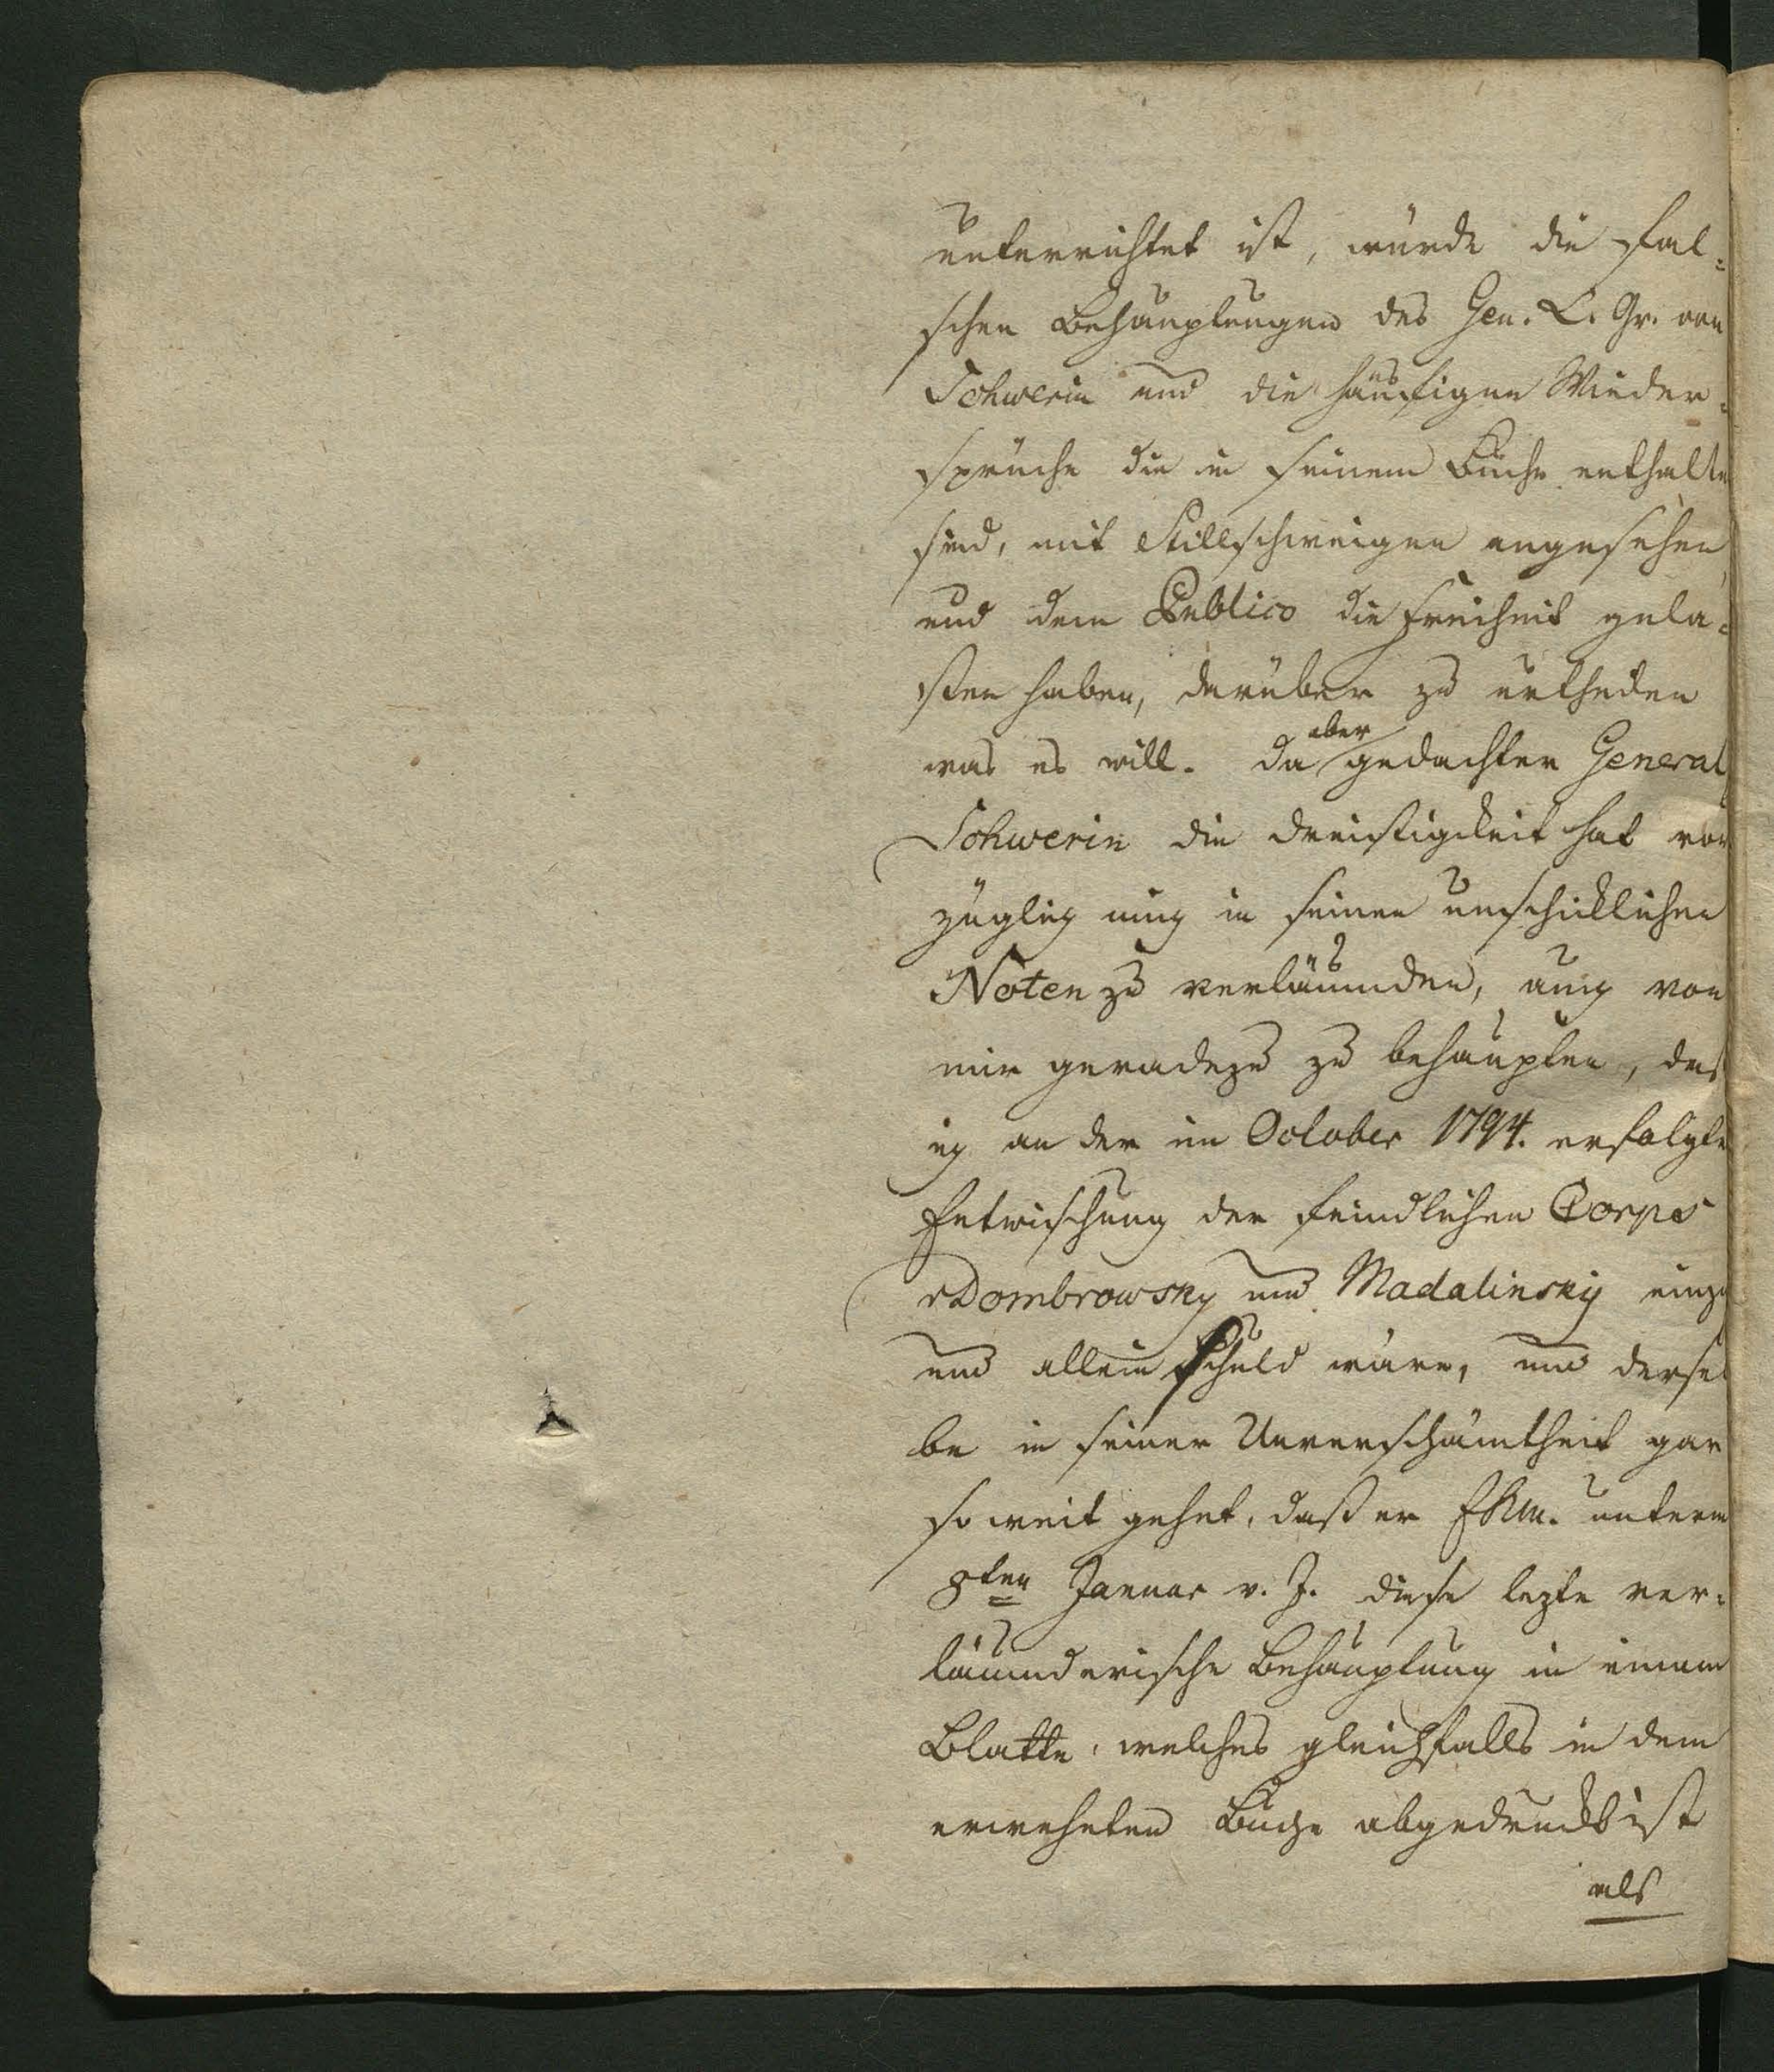 unterrichtet ist, würde die fal-
schen Behauptungen des Gen. L. Gr. von
Schwerin und die häufigen Wieder-
sprüche die in seinem Buche enthalten
sind, mit Stillschweigen angesehen
und dem Publico die Freiheit gela-
ßen haben, darüber zu urtheilen
was es will. Da aber gedachter General
Schwerin die Dreistigkeit hat vor
züglich mich in seinen unschicklichen
Noten zu verläumden, auch von
mir geradezu zu behaupten, daß
ich an der im October 1794. erfolgten
Entwischung der feindlichen Corps
Dombrowsky und Madalinsky einzig
und allein Schuld wäre, und dersel
be in seiner Unverschämtheit gar
so weit gehet, daß er EKM. unterm
8ten Januar v. J. diese lezte ver-
läumderische Behauptung in einem
Blatte, welches gleichfalls in dem
erwehnten Buche abgedruckt ist
als